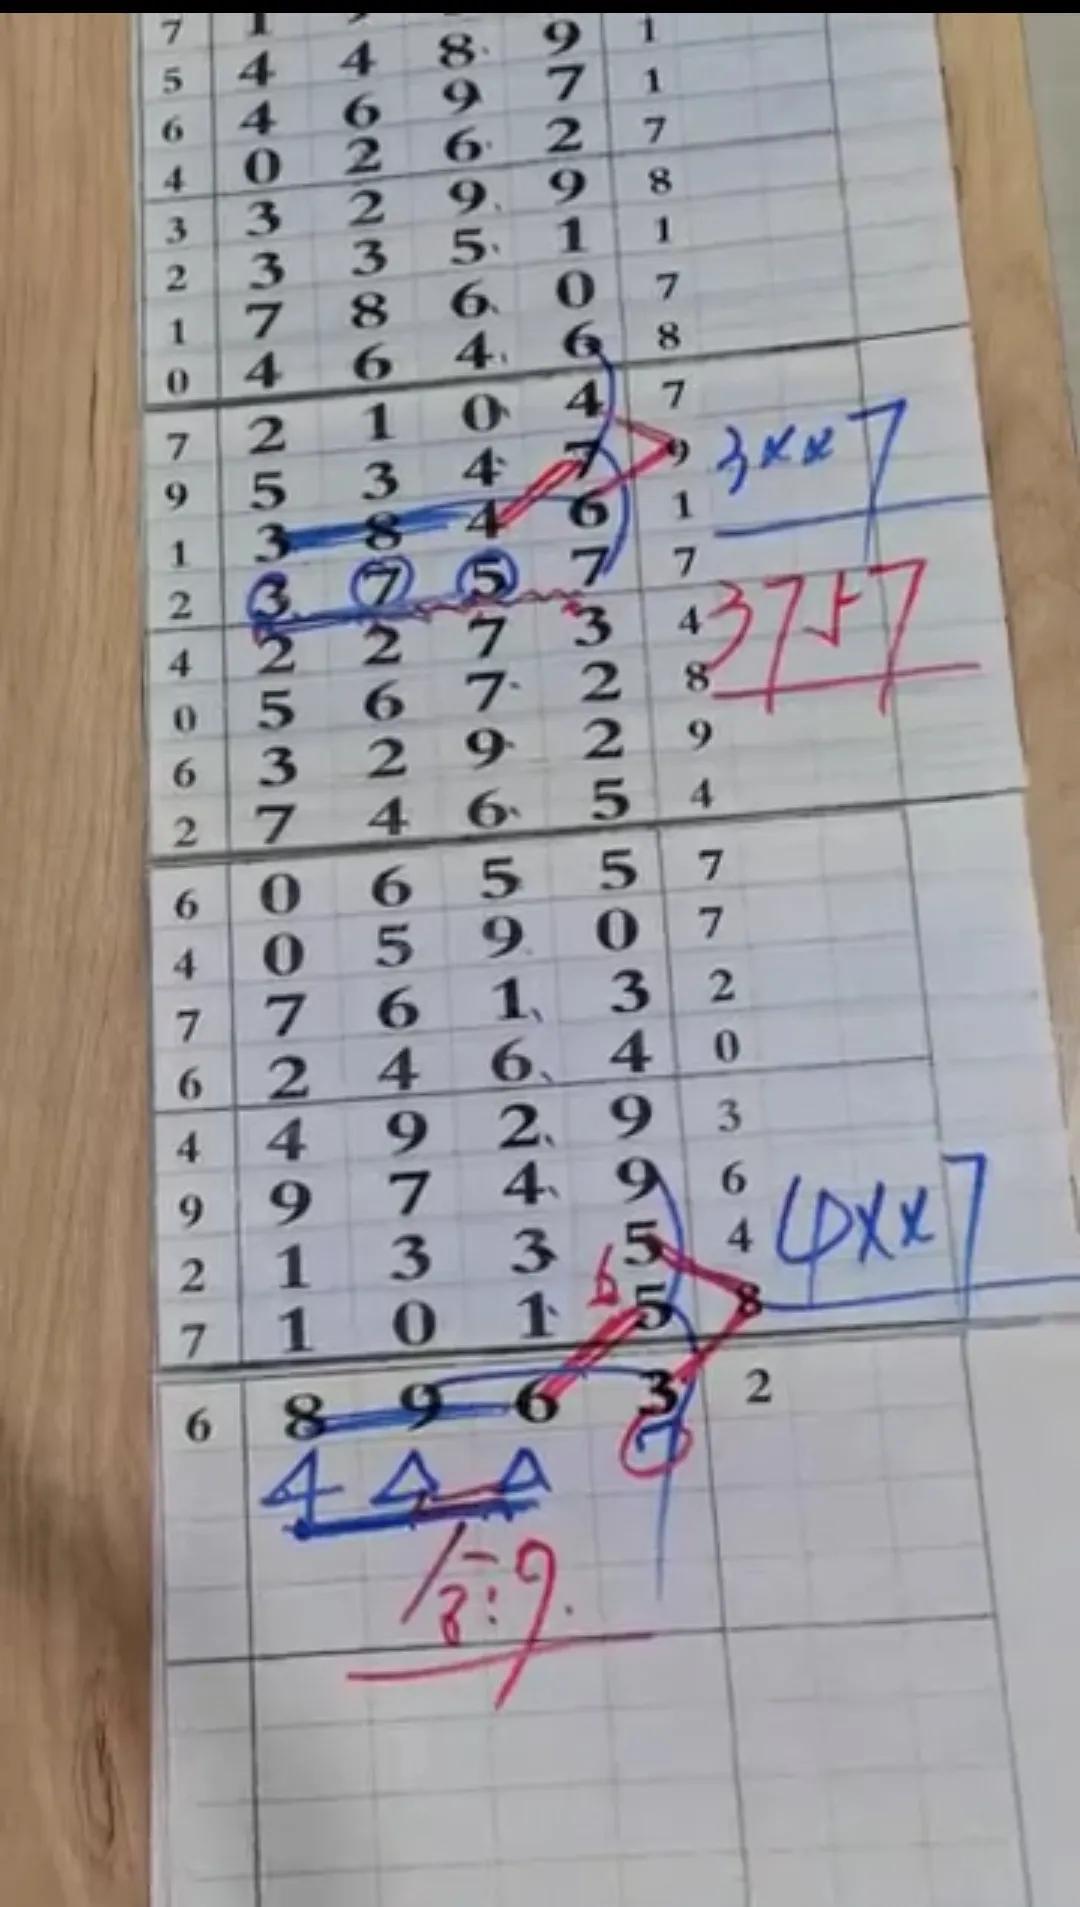 7 1
5 4 4 8 9 1
6 4 6 9 7 1
4 0 2 6 2 7
3 3 2 9 9 8
2 3 3 5 1 1
1 7 8 6 0 7
0 4 6 4 6 8
7 2 1 0 4 7
9 5 3 4 7 9 3××7
1 3 8 4 6 1
2 3 7 5 7 7
4 2 2 7 3 4
0 5 6 7 2 8
6 3 2 9 2 9
2 7 4 6 5 4
6 0 6 5 5 7
4 0 5 9 0 7
7 7 6 1 3 2
6 2 4 6 4 0
4 4 9 2 9 3
9 9 7 4 9 6
2 1 3 3 5 4 4××7
7 1 0 1 6 5 8
6 8 9 6 3 2
4 △ △ 7